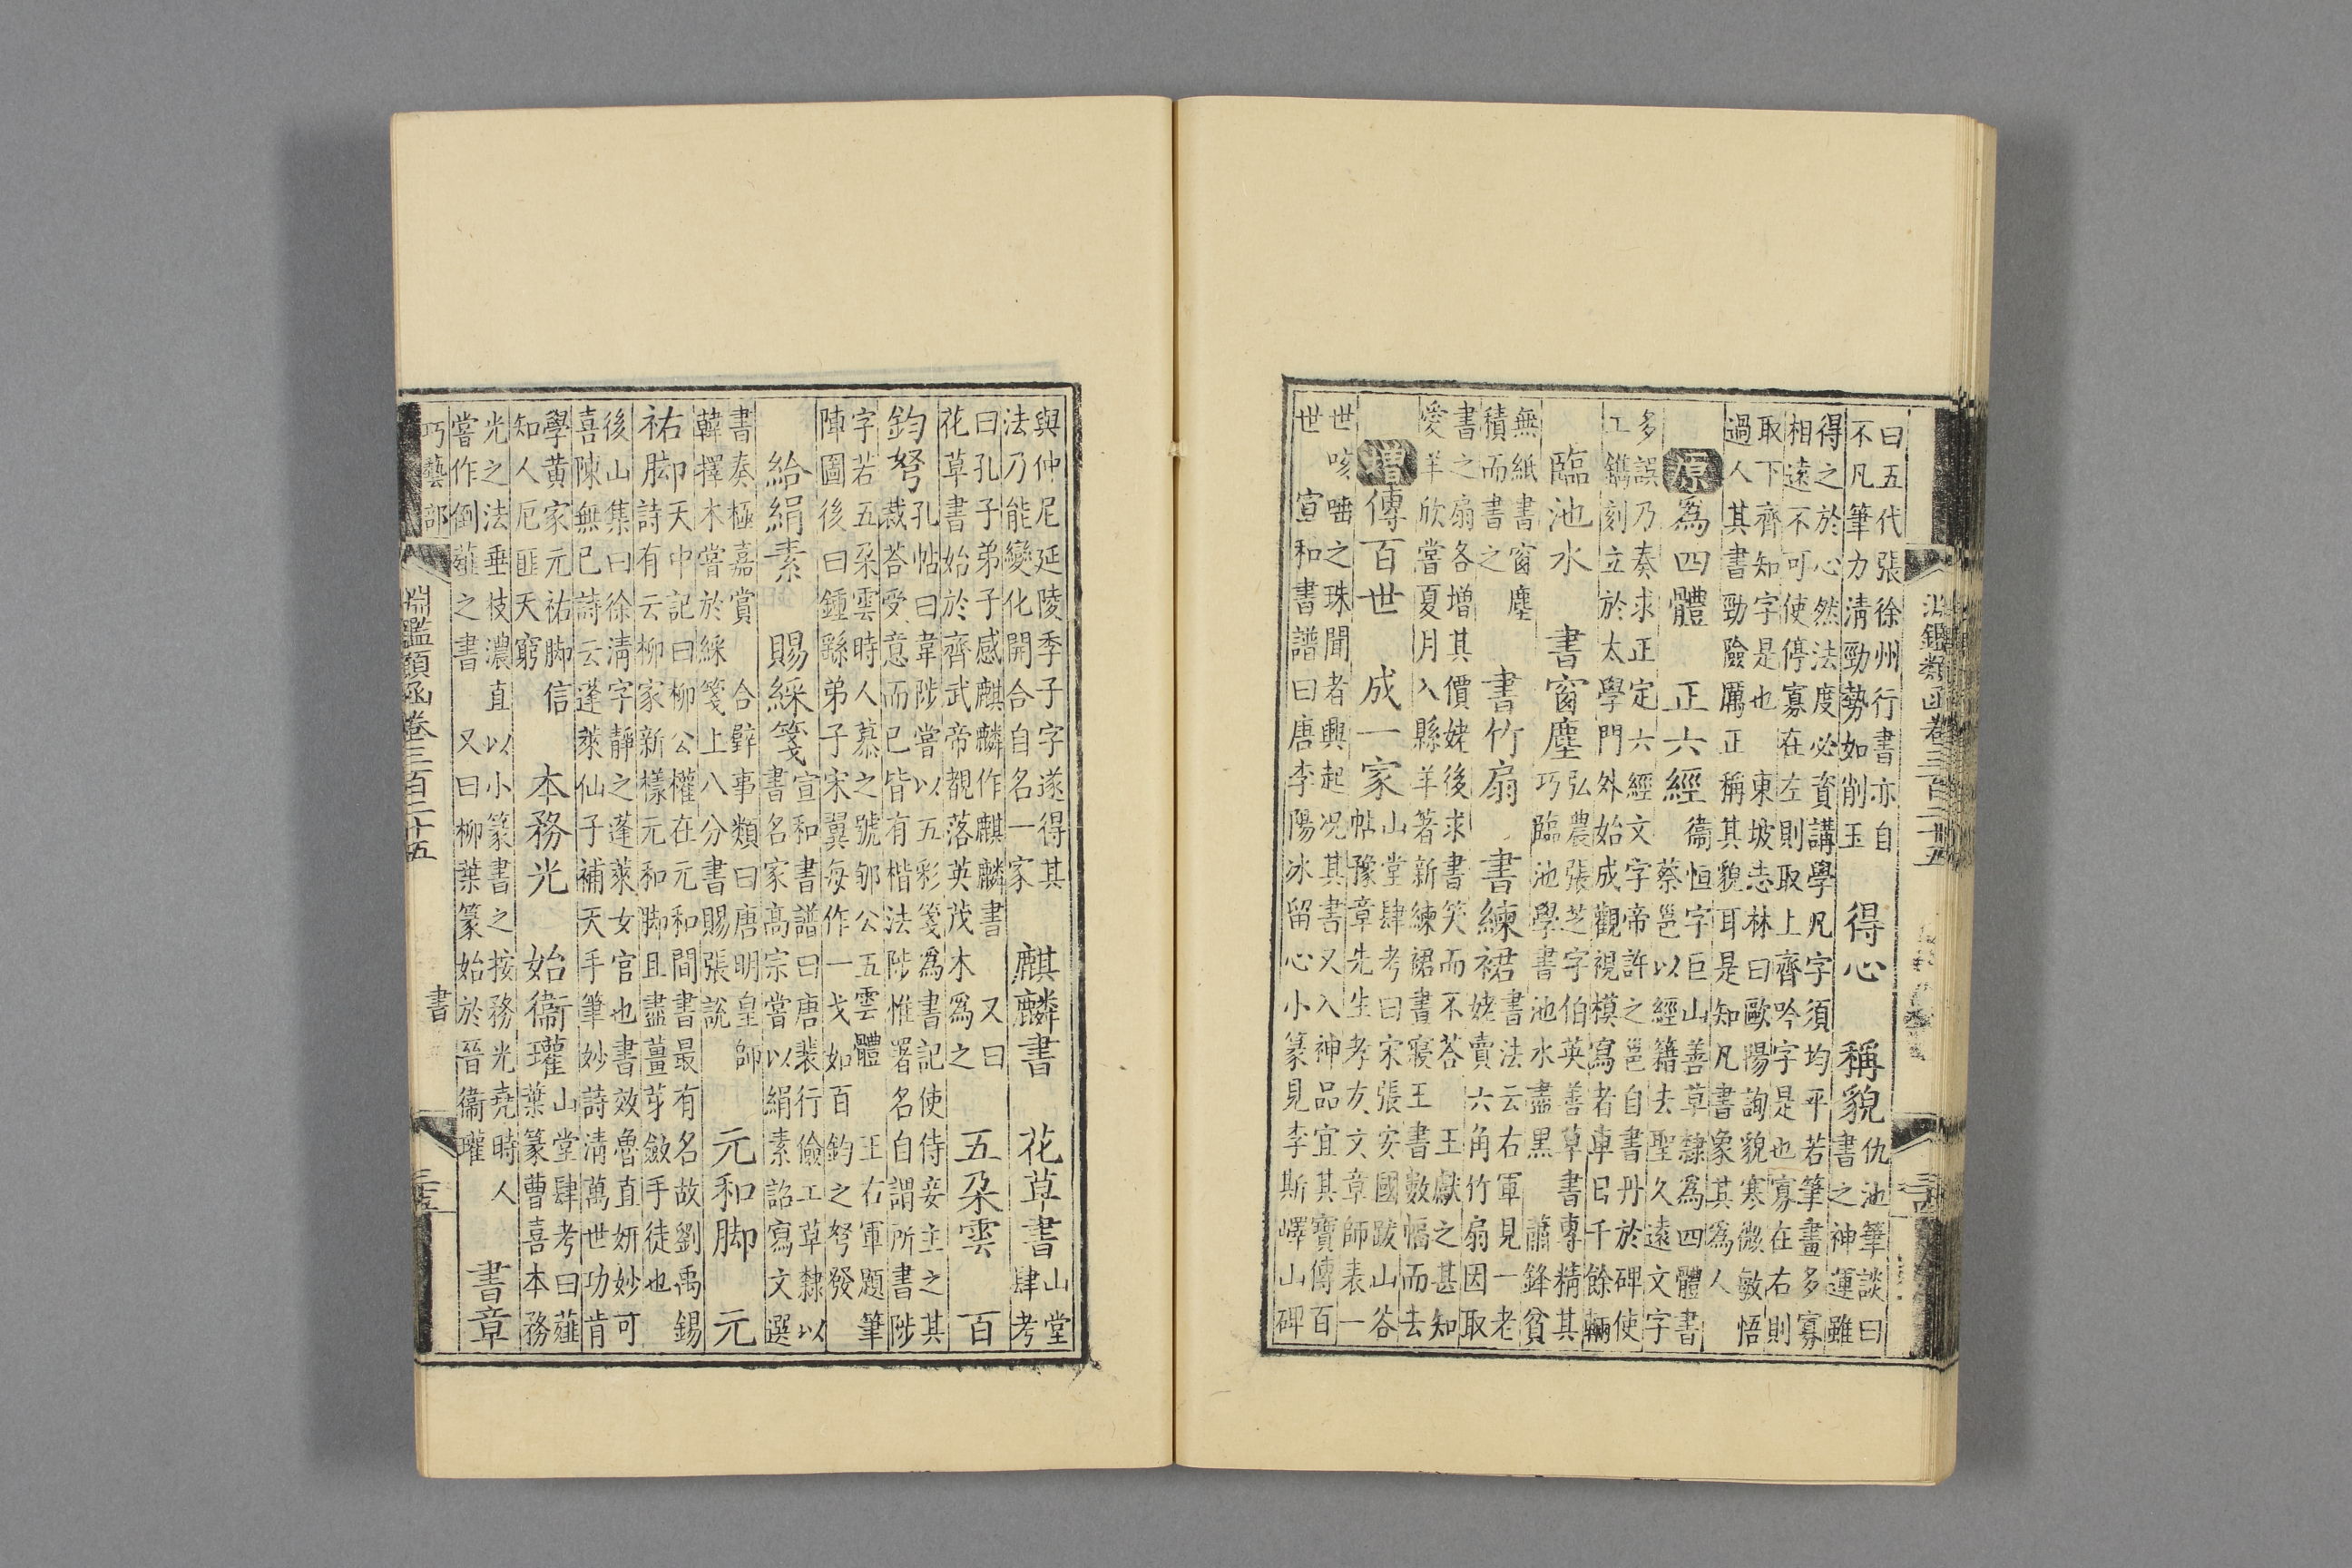 淵鑑類函卷三百二十五
曰五代張徐州行書亦自
不凡筆力清勁勢如削玉
得心 稱貌
仇池筆談曰
書之神運雖
得之於心然法度必資講學凡字須均平若筆畫多寡
相遠不可使停寡在左則取上齊吟字是也寡在右則
取下齊知字是也 東坡志林曰歐陽詢貌寒微敏悟
過人其書勁險厲正稱其貌耳是知凡書象其為人
原為四體 正六經
衞恒字巨山善草隸為四體書
蔡邕以經籍去聖久遠文字
多誤乃奏求正定六經文字帝許之邕自書丹於碑使
工鐫刻立於太學門外始成觀視模寫者車日千餘輛
臨池水 書窗塵
弘農張芝字伯英善草書專精其
巧臨池學書池水盡黑 蕭鋒貧
無紙書窗塵
積而書之
書竹扇 書練裙
書法云右軍見一老
姥賣六角竹扇因取
書之扇各增其價姥後求書笑而不荅 王獻之甚知
愛羊欣嘗夏月入縣羊著新練裙晝寢王書數幅而去
增傳百世 成一家
山堂肆考曰宋張安國跋山谷
帖豫章先生孝友文章師表一
世咳唾之珠聞者興起况其書又入神品宜其寶傳百
世 宣和書譜曰唐李陽冰留心小篆見李斯嶧山碑
與仲尼延陵季子字遂得其
法乃能變化開合自名一家
麒麟書 花草書
山堂
肆考
曰孔子弟子感麒麟作麒麟書 又曰
花草書始於齊武帝覩落英茂木為之
五朵雲 百
鈞弩
孔帖曰韋陟嘗以五彩箋為書記使侍妾主之其
裁荅受意而已皆有楷法陟惟署名自謂所書陟
字若五朵雲時人慕之號郇公五雲體 王右軍題筆
陣圖後曰鍾繇弟子宋翼每作一戈如百鈞之弩發
給絹素 賜綵箋
宣和書譜曰唐裴行儉工草隸以
書名家高宗嘗以絹素詔寫文選
書奏極嘉賞 合璧事類曰唐明皇師
韓擇木嘗於綵箋上八分書賜張說
元和脚 元
祐脚
天中記曰柳公權在元和間書最有名故劉禹錫
詩有云柳家新樣元和脚且盡薑芽斂手徒也
後山集曰徐清字靜之蓬萊女官也書效魯直妍妙可
喜陳無已詩云蓬萊仙子補天手筆妙詩清萬世功肯
學黃家元祐脚信
知人厄匪天窮
本務光 始衞瓘
山堂肆考曰薤
葉篆曹喜本務
光之法垂枝濃直以小篆書之按務光堯時人
嘗作倒薤之書 又曰柳葉篆始於晉衞瓘
書章
巧藝部 書
淵鑑類函卷三百二十五